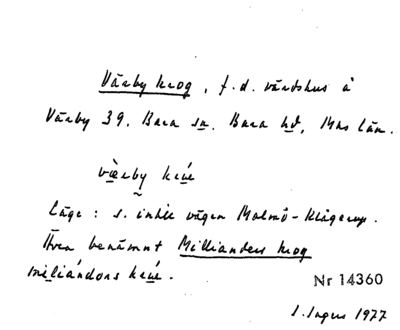 Värby krog, f.d. värdshus å
Värby 39, Bara sn. Bara hd, Mhs län.
væ̀rby krɷ́
Läge: s. intill vägen Malmö-Klågerup.
Även benämnt Millianders krog
miliándɔns krɷ́.
Nr 14360
I. Ingers 1977